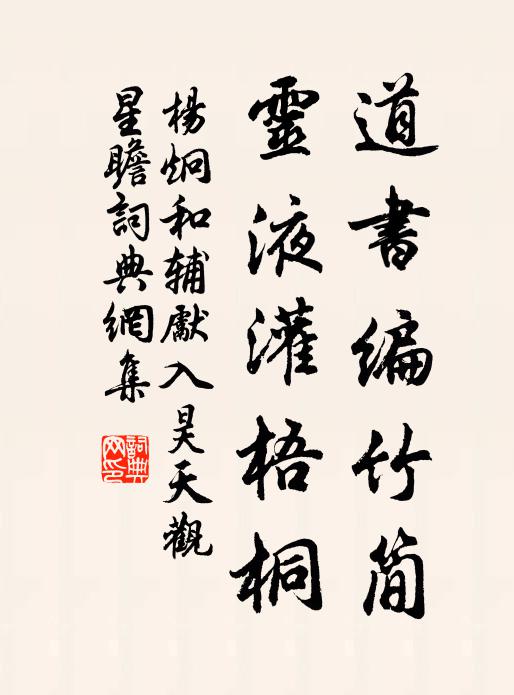 道書編竹簡
靈液灌梧桐
楊炯和輔獻入昊天觀
星瞻詞典網集
詞典网印